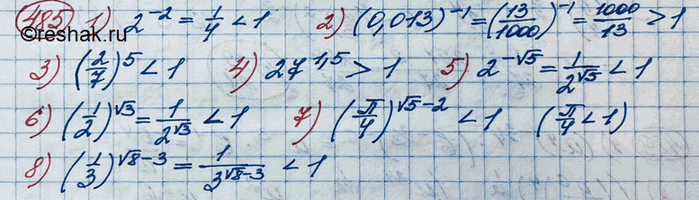 485 1) 2^{-2} = \frac{1}{4} < 1 2) (0,013)^{-1} = (\frac{13}{1000})^{-1} = \frac{1000}{13} > 1
©reshak.ru
3) (\frac{2}{7})^5 < 1 4) 27^{1,5} > 1 5) 2^{-\sqrt{5}} = \frac{1}{2^{\sqrt{5}}} < 1
6) (\frac{1}{2})^{\sqrt{3}} = \frac{1}{2^{\sqrt{3}}} < 1 7) (\frac{π}{4})^{\sqrt{5}-2} < 1 (\frac{π}{4} < 1)
8) (\frac{1}{3})^{\sqrt{8}-3} = \frac{1}{3^{\sqrt{8}-3}} < 1